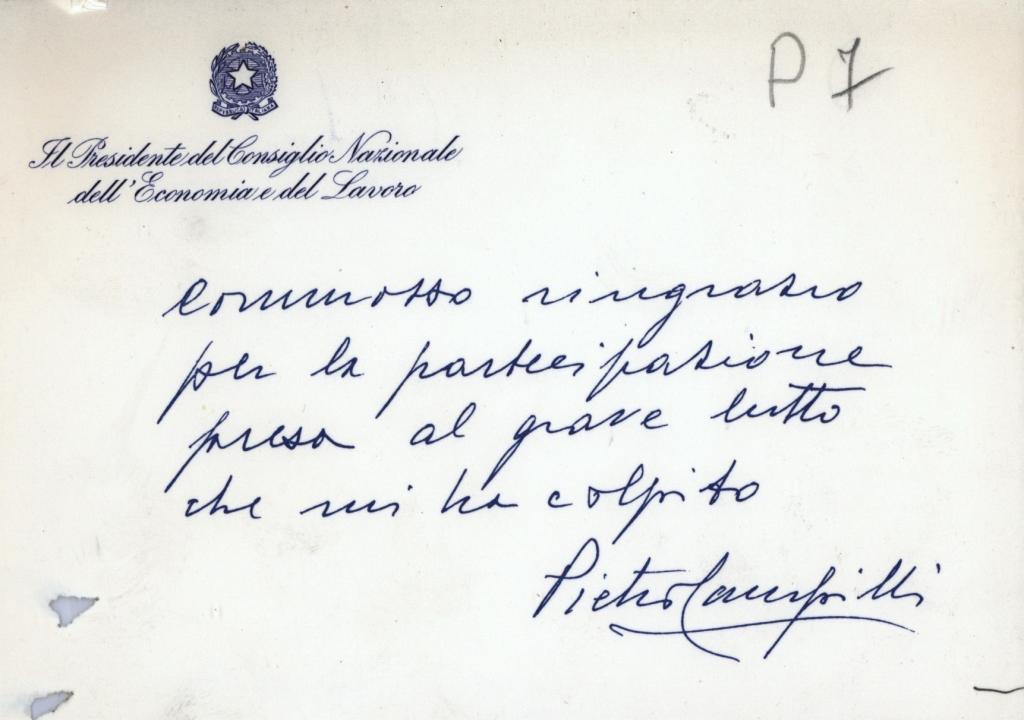 P 7
Il Presidente del Consiglio Nazionale
dell'Economia e del Lavoro
Commosso ringrazio
per la partecipazione
presa al grave lutto
che mi ha colpito
Pietro Campilli